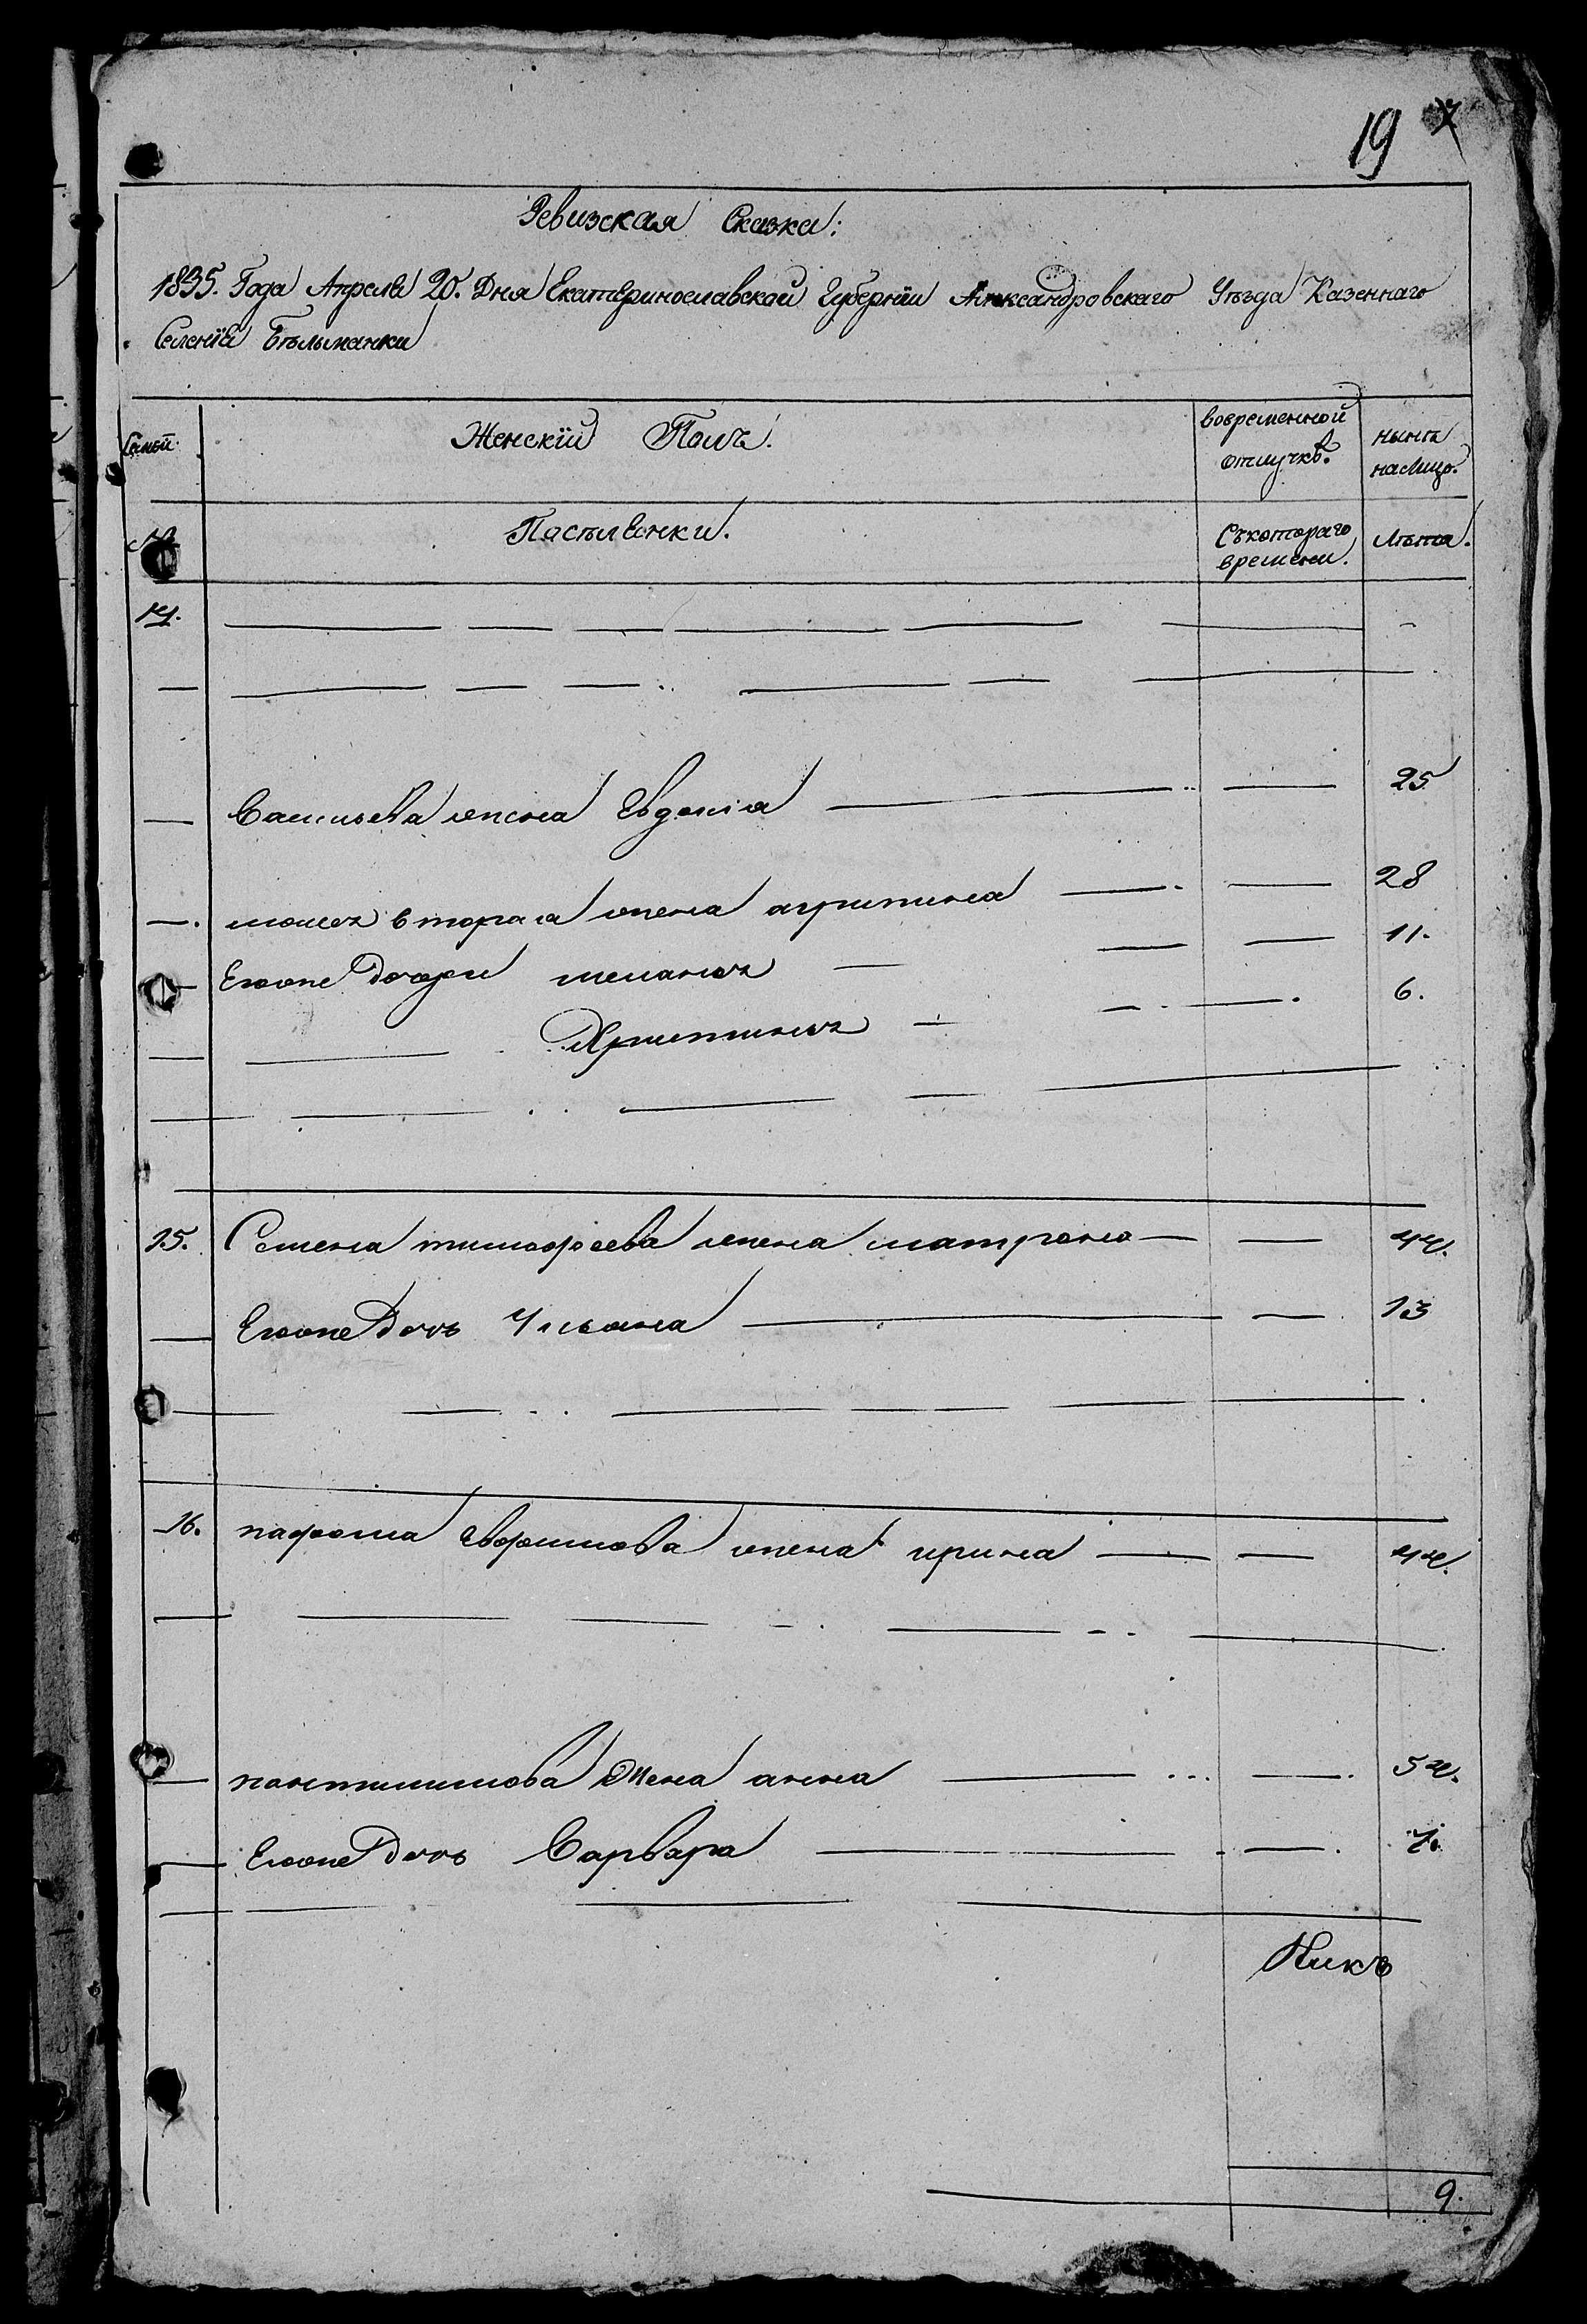 19 7
Ревизская Сказка:
1835. Года Апреля 20. Дня Екатеринославской Губернїи Александровскаго Уѣзда Казеннаго
Селенїя Бѣльманки
Семьи Женскїй Полъ. вовременной отлучкѣ. нынѣ налицо.
№ Посѣленки. Съкотораго времени. Лѣта.
14.
Васильева жена Евдокіа 25
вторая жена агрипина 28
Егоже Дочери меланья 11.
Христинья 6.
15. Семена тимофеева жена матрона 44.
Егоже Дочь Ульяна 13
16. пафома Ефимова жена ирина 44.
пантилимова Жена анна 54.
Егоже Дочь Варвара 7.
9.